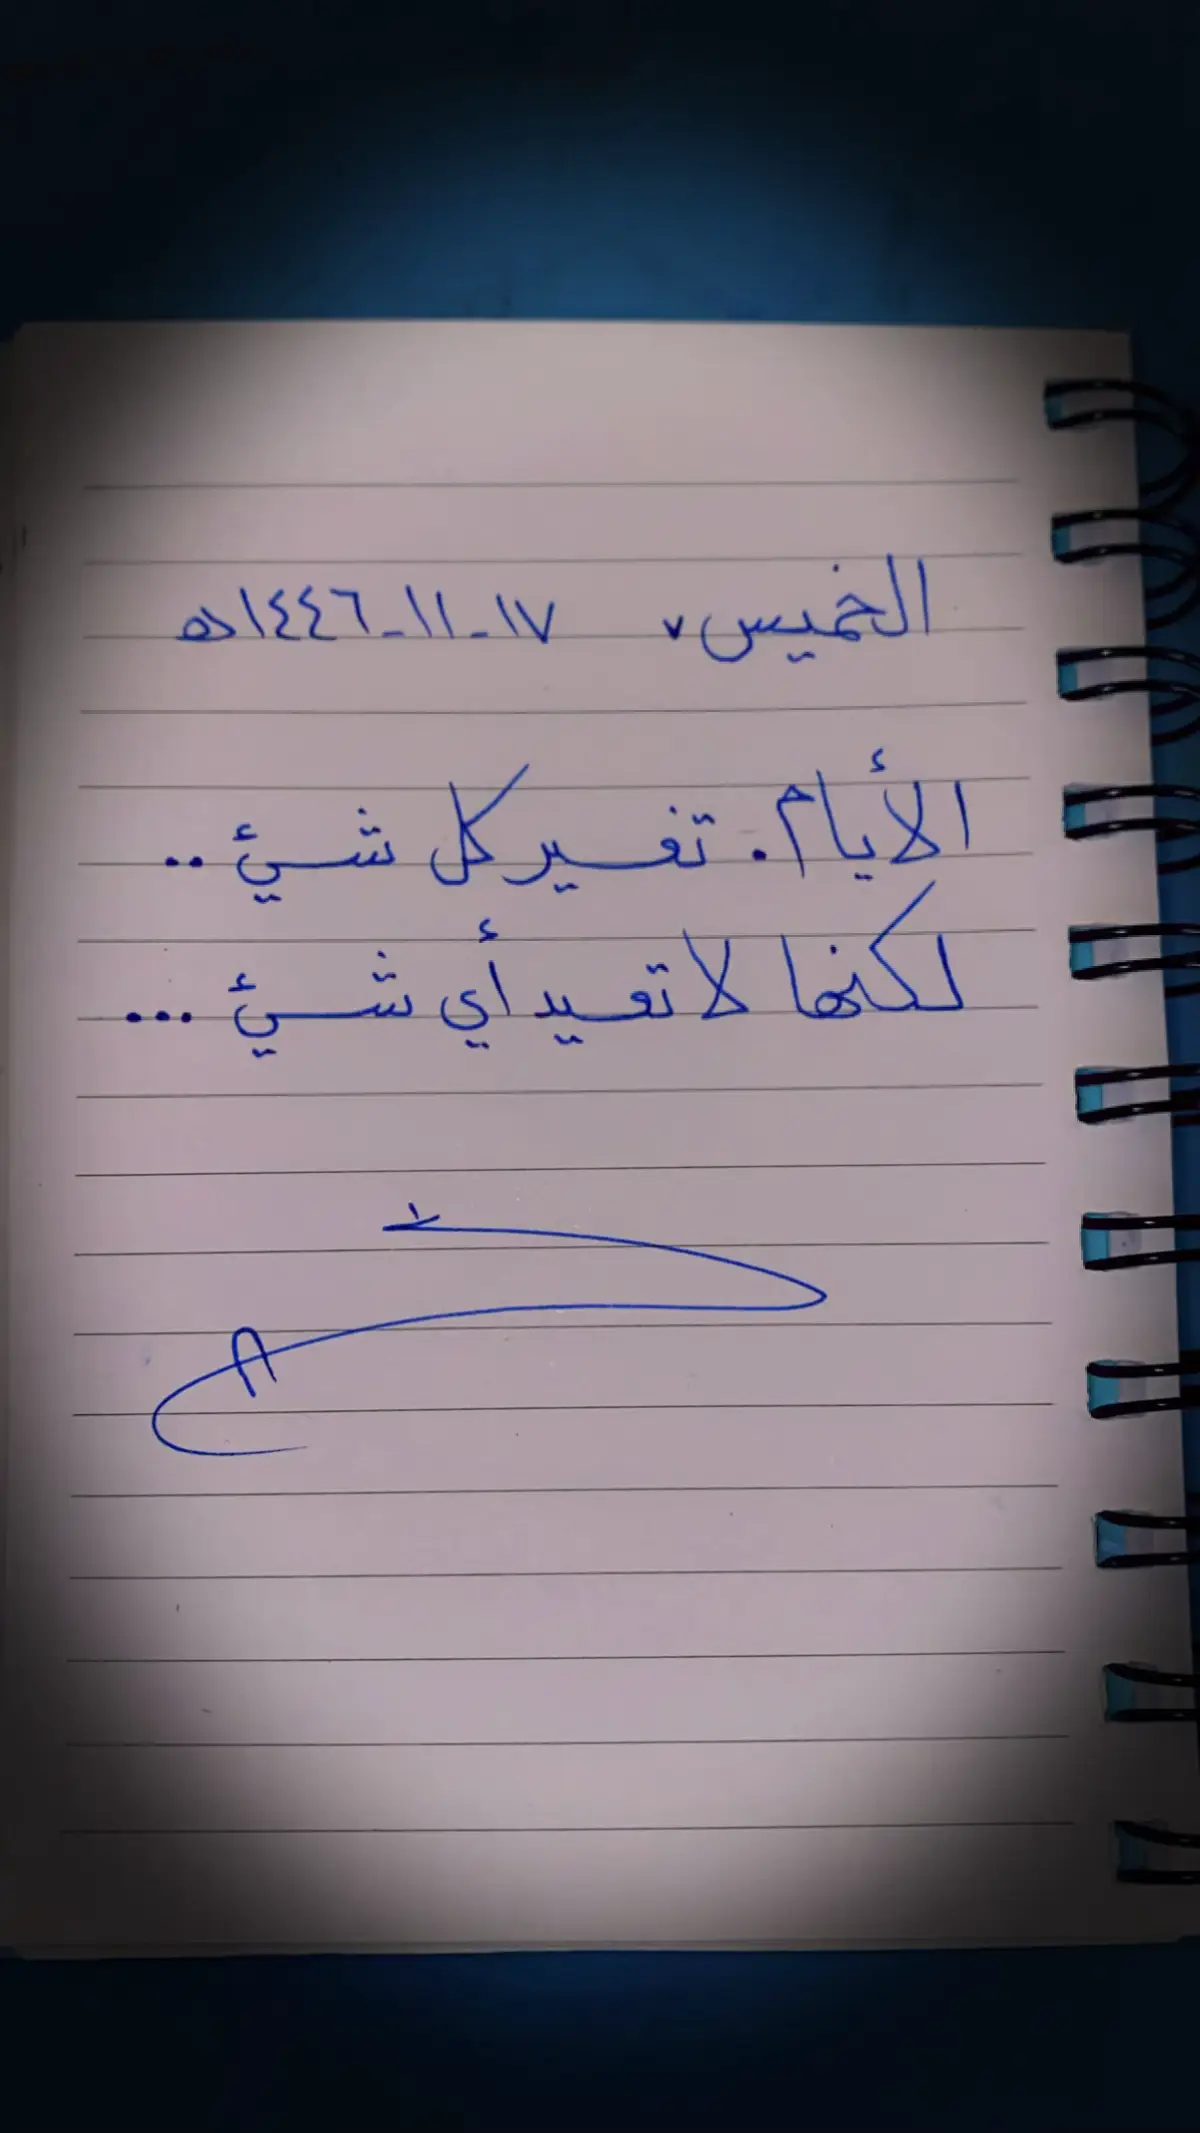 الخميس، ١٧-١١-١٤٤٦هـ
الأيام. تغير كل شيئ ..
لكنها لا تعيد أي شيئ ...